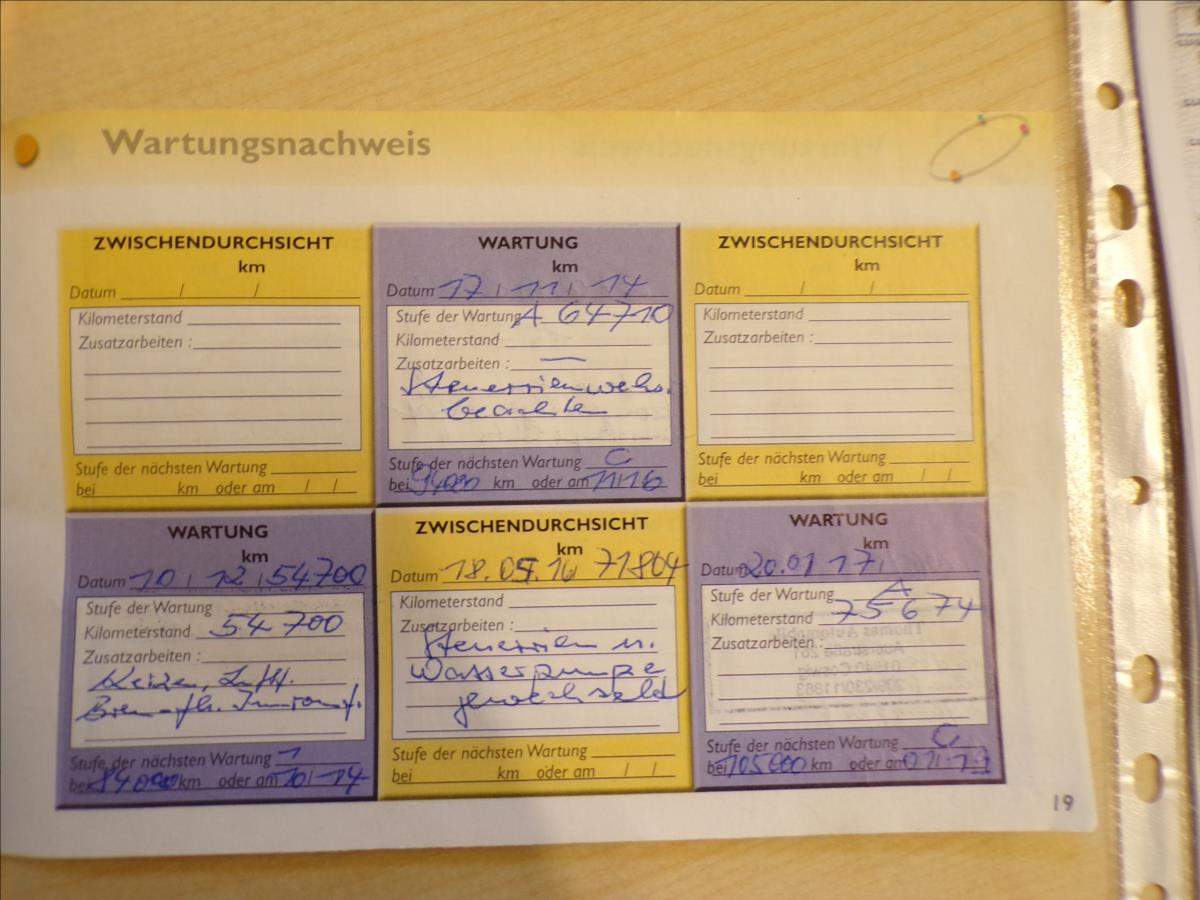 Wartungsnachweis
ZWISCHENDURCHSICHT
km
Datum / /
Kilometerstand
Zusatzarbeiten :
Stufe der nächsten Wartung
bei km oder am / /
WARTUNG
km
Datum 17 / 11 / 14
Stufe der Wartung A 64710
Kilometerstand
Zusatzarbeiten : —
Steuerriemenwechs.
beachten
Stufe der nächsten Wartung C
bei 94000 km oder am 11/16
ZWISCHENDURCHSICHT
km
Datum / /
Kilometerstand
Zusatzarbeiten :
Stufe der nächsten Wartung
bei km oder am / /
WARTUNG
km
Datum 10 / 12 / 54700
Stufe der Wartung
Kilometerstand 54 700
Zusatzarbeiten :
Luftf.
Stufe der nächsten Wartung
bei 84000 km oder am 10/ 14
ZWISCHENDURCHSICHT
km
Datum 18.05.16 71804
Kilometerstand
Zusatzarbeiten :
Steuerriemen u.
Wasserpumpe
gewechselt
Stufe der nächsten Wartung
bei km oder am / /
WARTUNG
km
Datum 20.01 17
Stufe der Wartung A
Kilometerstand 75674
Zusatzarbeiten :
Stufe der nächsten Wartung C
bei 105000 km oder am
19